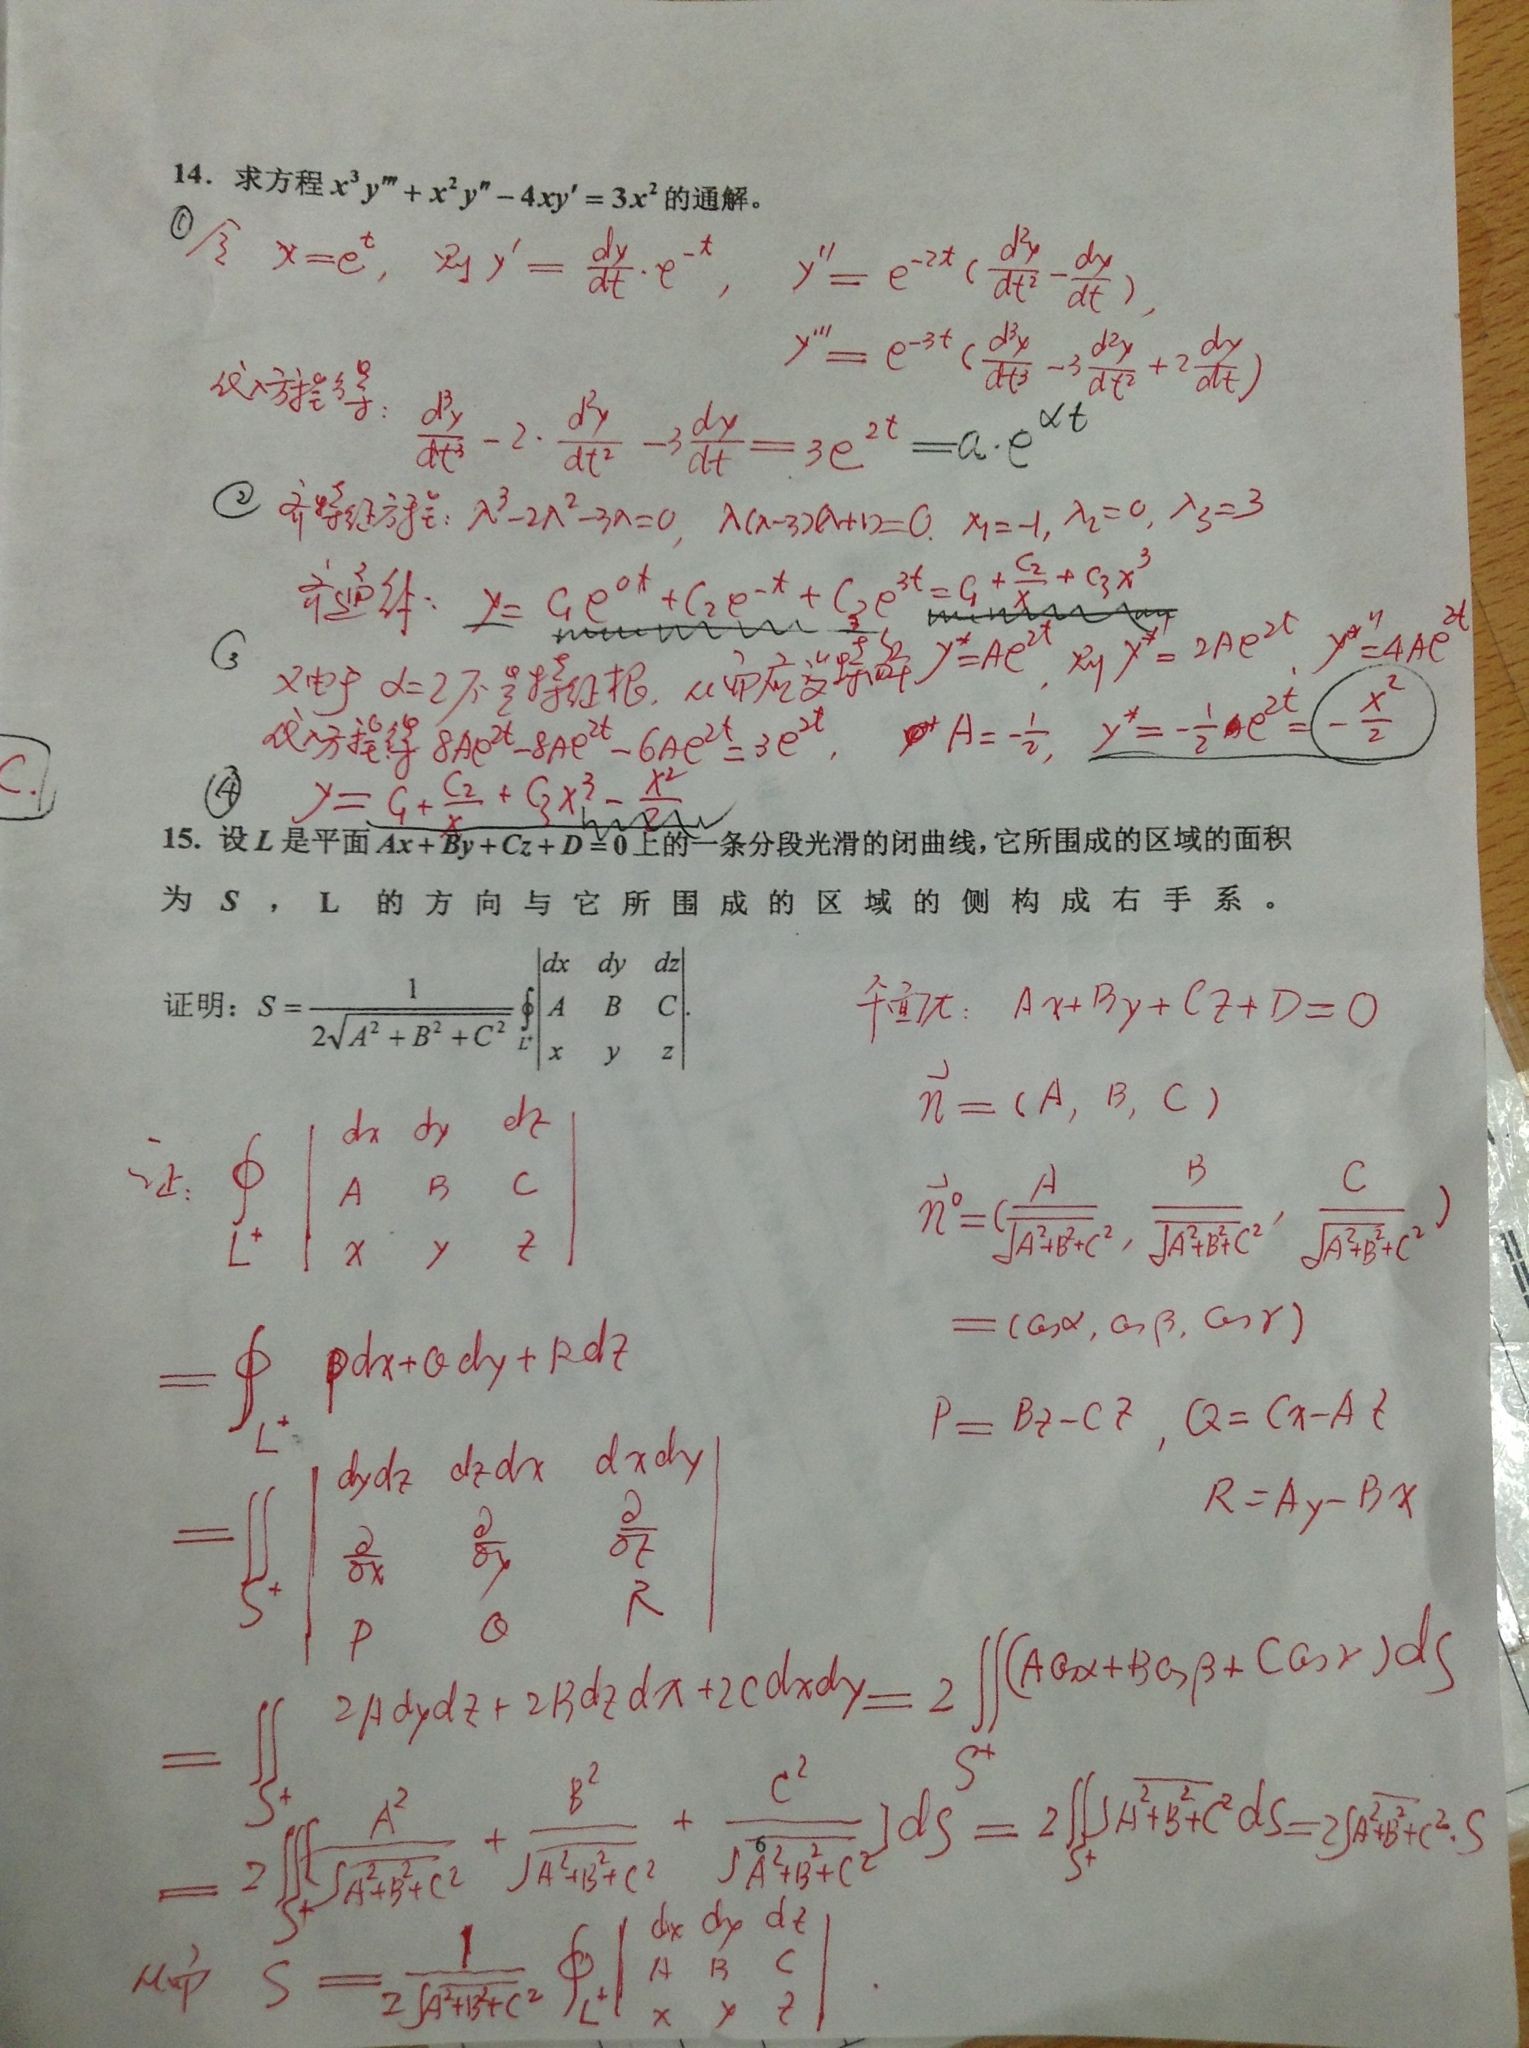 14. 求方程 x³y''' + x²y'' − 4xy' = 3x² 的通解。
① 令 x=e^t, 则 y' = dy/dt · e^-t, y'' = e^-2t (d²y/dt² − dy/dt),
y''' = e^-3t (d³y/dt³ − 3 d²y/dt² + 2 dy/dt)
代入方程得: d³y/dt³ − 2· d²y/dt² − 3 dy/dt = 3e^2t = a·e^αt
② 齐特征方程: λ³−2λ²−3λ=0, λ(λ−3)(λ+1)=0. λ₁=−1, λ₂=0, λ₃=3
齐通解: y = C₁e^0t + C₂e^-t + C₃e^3t = C₁ + C₂/x + C₃x³
③ 又由于 α=2不是特征根, 从而应设特解 y*=Ae^2t, 则 y*'=2Ae^2t, y*''=4Ae^2t
代入方程得 8Ae^2t−8Ae^2t−6Ae^2t=3e^2t, A=−1/2, y*=−1/2 e^2t=−x²/2
C.
④ y = C₁ + C₂/x + C₃x³ − x²/2
15. 设 L 是平面 Ax+By+Cz+D=0 上的一条分段光滑的闭曲线,它所围成的区域的面积
为 S , L 的方向与它所围成的区域的侧构成右手系。
证明: S = 1/(2√(A²+B²+C²)) ∮_L⁺ |dx dy dz; A B C; x y z|.
平面π: Ax+By+Cz+D=0
n⃗ = (A, B, C)
证: ∮_L⁺ |dx dy dz; A B C; x y z|
n⃗° = (A/√(A²+B²+C²), B/√(A²+B²+C²), C/√(A²+B²+C²))
= (cosα, cosβ, cosγ)
= ∮_L⁺ Pdx+Qdy+Rdz
P = Bz−CZ, Q = Cx−AZ
R = Ay−Bx
= ∬_S⁺ |dydz dzdx dxdy; ∂/∂x ∂/∂y ∂/∂z; P Q R|
= ∬_S⁺ 2Adydz+2Bdzdx+2Cdxdy = 2∬_S⁺ (Acosα+Bcosβ+Ccosγ)dS
= 2∬_S⁺ [A²/√(A²+B²+C²) + B²/√(A²+B²+C²) + C²/√(A²+B²+C²)]dS = 2∬_S⁺ √(A²+B²+C²) dS = 2√(A²+B²+C²)·S
6
从而 S = 1/(2√(A²+B²+C²)) ∮_L⁺ |dx dy dz; A B C; x y z|.